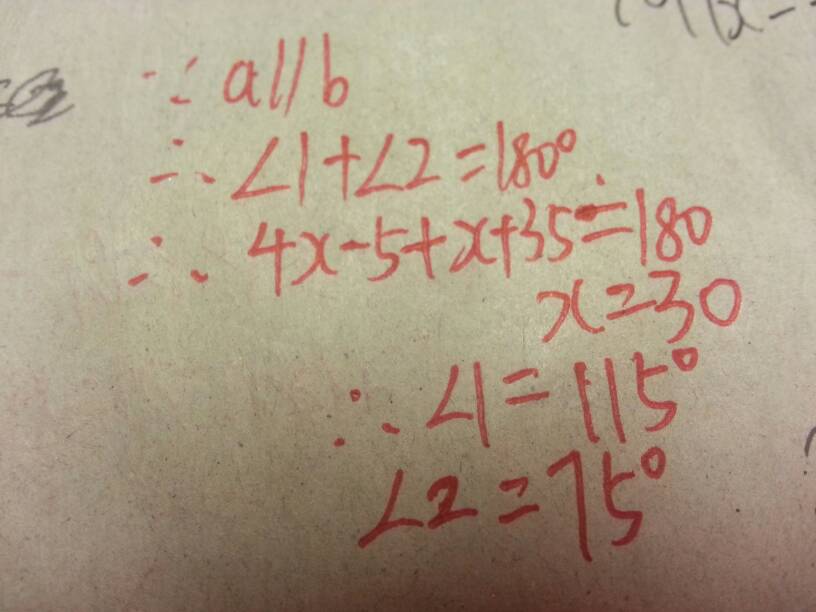 ∵ a//b
∴ ∠1+∠2=180°
∴ 4x-5+x+35=180
x=30
∴ ∠1=115°
∠2=75°